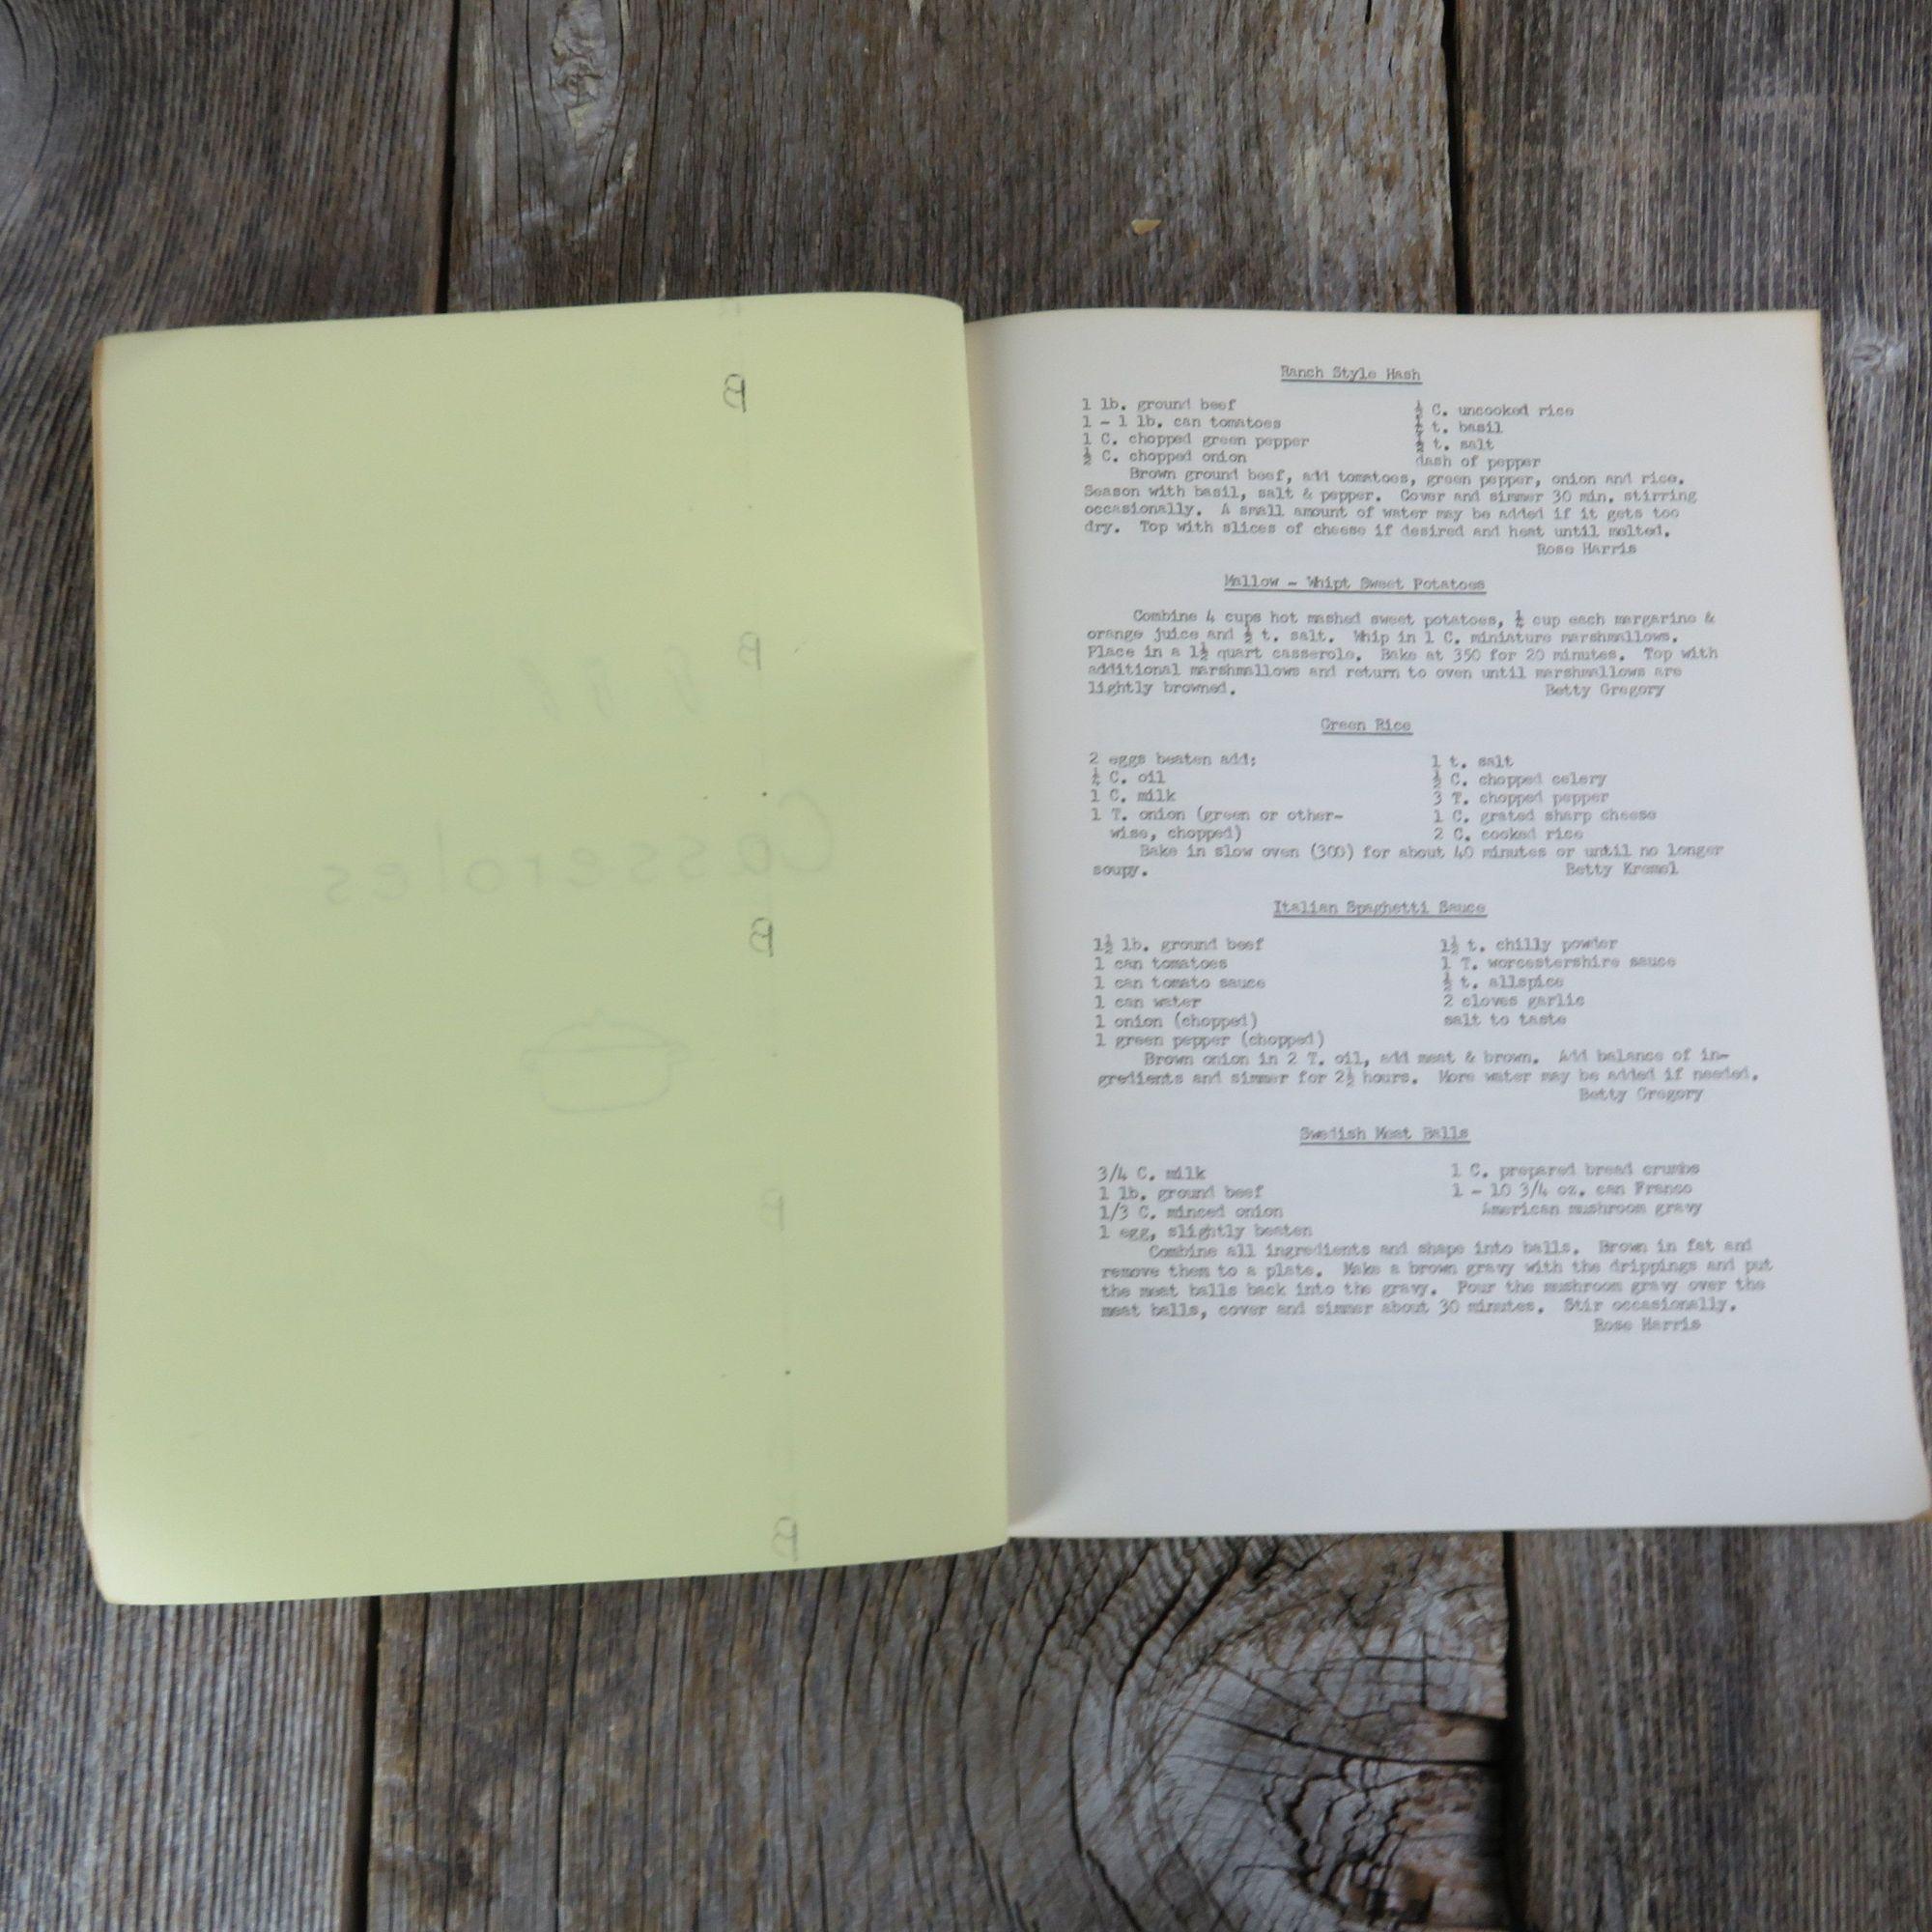 Casseroles
Ranch Style Hash
1 lb. ground beef
1 - 1 lb. can tomatoes
1 C. chopped green pepper
½ C. chopped onion
½ C. uncooked rice
t. basil
½ t. salt
dash of pepper
Brown ground beef, add tomatoes, green pepper, onion and rice.
Season with basil, salt & pepper. Cover and simmer 30 min. stirring
occasionally. A small amount of water may be added if it gets too
dry. Top with slices of cheese if desired and heat until melted.
Rose Harris
Mallow - Whipt Sweet Potatoes
Combine 4 cups hot mashed sweet potatoes, ¼ cup each margarine &
orange juice and ½ t. salt. Whip in 1 C. miniature marshmallows.
Place in a 1½ quart casserole. Bake at 350 for 20 minutes. Top with
additional marshmallows and return to oven until marshmallows are
lightly browned.
Betty Gregory
Green Rice
2 eggs beaten add;
¼ C. oil
1 C. milk
1 T. onion (green or other-
wise, chopped)
1 t. salt
½ C. chopped celery
3 T. chopped pepper
1 C. grated sharp cheese
2 C. cooked rice
Bake in slow oven (300) for about 40 minutes or until no longer
soupy.
Betty Kremel
Italian Spaghetti Sauce
1½ lb. ground beef
1 can tomatoes
1 can tomato sauce
1 can water
1 onion (chopped)
1 green pepper (chopped)
1½ t. chilly powder
1 T. worcestershire sauce
½ t. allspice
2 cloves garlic
salt to taste
Brown onion in 2 T. oil, add meat & brown. Add balance of in-
gredients and simmer for 2½ hours. More water may be added if needed.
Betty Gregory
Swedish Meat Balls
3/4 C. milk
1 lb. ground beef
1/3 C. minced onion
1 egg, slightly beaten
1 C. prepared bread crumbs
1 - 10 3/4 oz. can Franco
American mushroom gravy
Combine all ingredients and shape into balls. Brown in fat and
remove them to a plate. Make a brown gravy with the drippings and put
the meat balls back into the gravy. Pour the mushroom gravy over the
meat balls, cover and simmer about 30 minutes. Stir occasionally.
Rose Harris